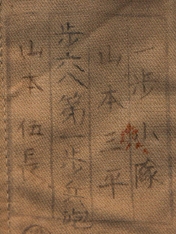 一歩小隊
山本三平
歩六八第一歩兵砲
山本伍長